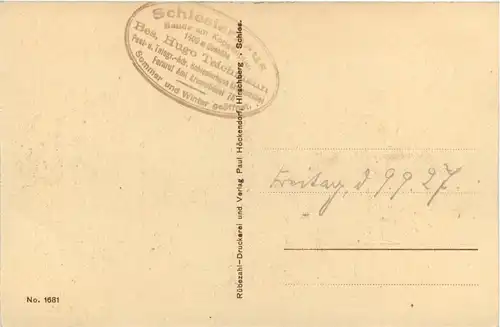 Schlesierhaus
Baude am Kop
1400 m Seehöhe
Bes. Hugo Teichmann
Post- u. Telegr.-Adr.
Fernruf Amt Krummhübel
Sommer und Winter geöffnet.
Rübezahl-Druckerei und Verlag Paul Höckendorf, Hirschberg i. Schles.
Freitag, d. 9. 9. 27.
No. 1681